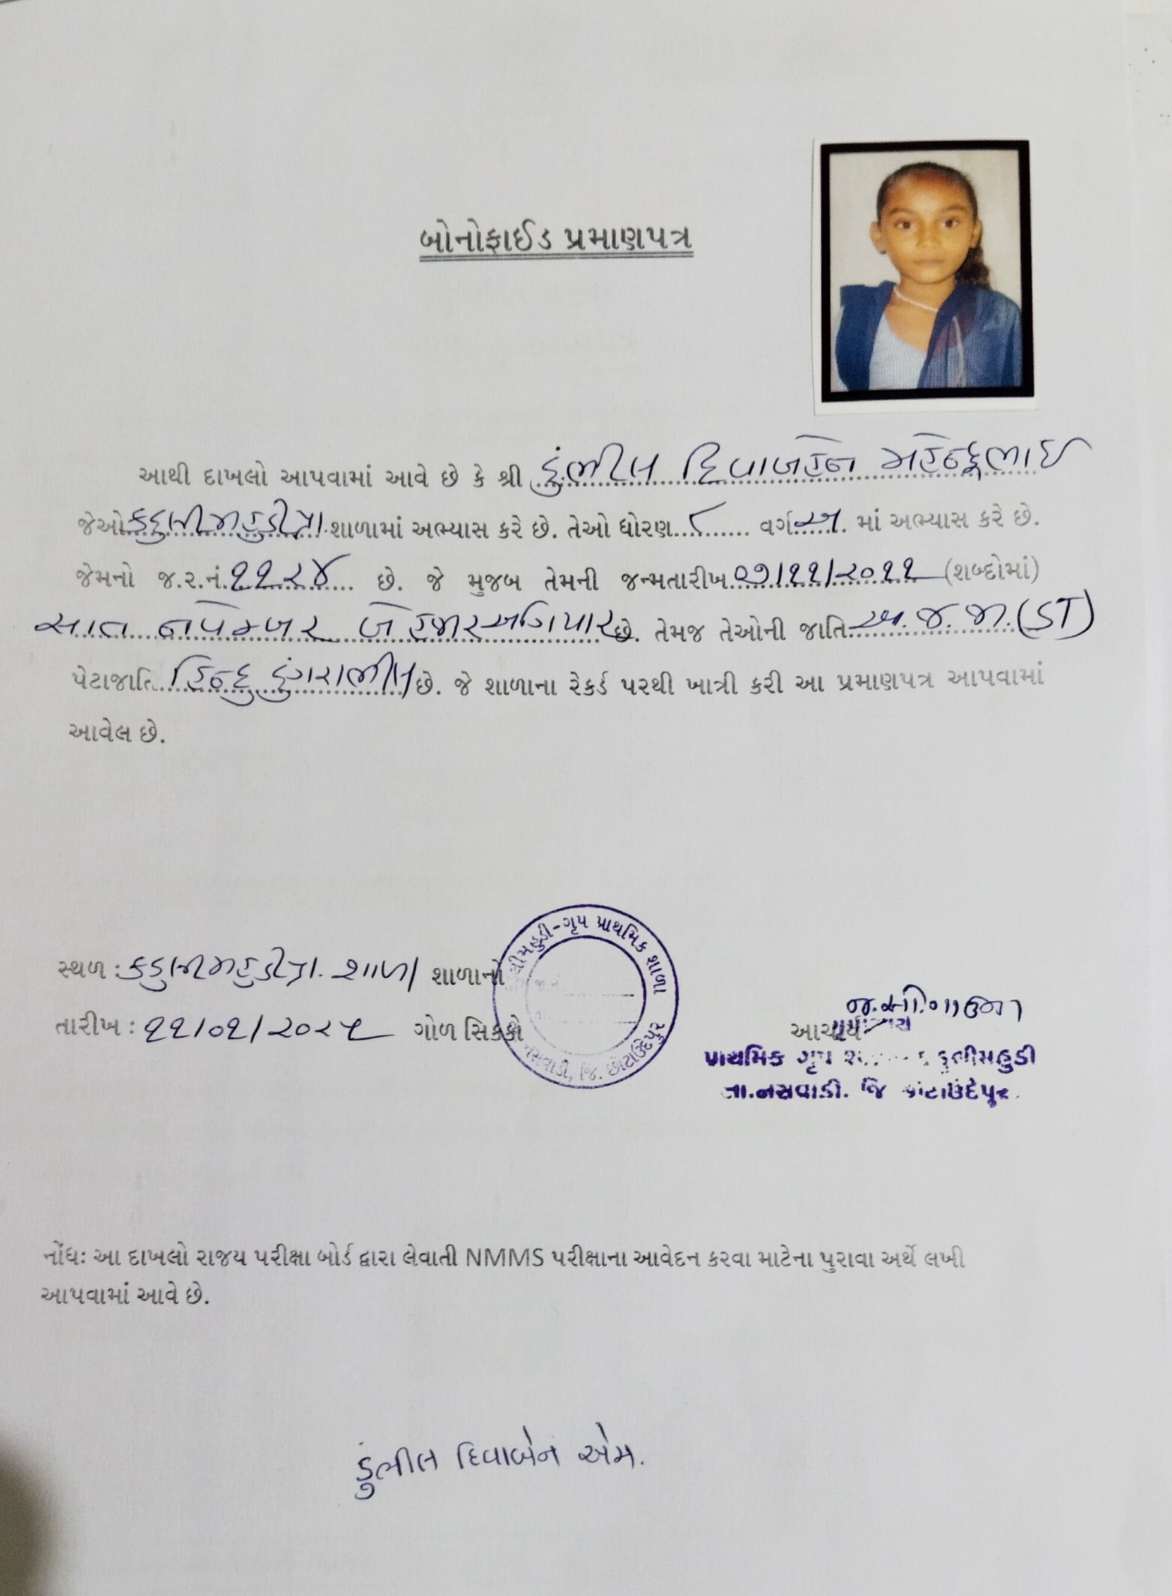 બોનોફાઈડ પ્રમાણપત્ર
આથી દાખલો આપવામાં આવે છે કે શ્રી ડુંભીલ દિવાબહેન મહેન્દ્રભાઇ
જેઓ કડુલીમહુડી પ્રા. શાળામાં અભ્યાસ કરે છે. તેઓ ધોરણ ૮ વર્ગ અ માં અભ્યાસ કરે છે.
જેમનો જ.ર.નં. ૧૧૨૪ છે. જે મુજબ તેમની જન્મતારીખ ૦૭/૧૧/૨૦૧૧ (શબ્દોમાં)
સાત નવેમ્બર બે હજાર અગિયાર છે. તેમજ તેઓની જાતિ અ.જ.જા.(ST)
પેટાજાતિ હિન્દુ ડુંગરાભીલ છે. જે શાળાના રેકર્ડ પરથી ખાત્રી કરી આ પ્રમાણપત્ર આપવામાં
આવેલ છે.
સ્થળ : કડુલીમહુડી પ્રા. શાળા શાળાનો
તારીખ : ૧૧/૦૧/૨૦૨૫ ગોળ સિક્કો
મહુડી-ગૃપ પ્રાથમિક શાળા
નસવાડી, જિ. છોટાઉદેપુર
આચાર્ય
પ્રાથમિક ગૃપ કડુલીમહુડી
તા.નસવાડી. જિ છોટાઉદેપુર.
નોંધ: આ દાખલો રાજ્ય પરીક્ષા બોર્ડ દ્વારા લેવાતી NMMS પરીક્ષાના આવેદન કરવા માટેના પુરાવા અર્થે લખી
આપવામાં આવે છે.
ડુંભીલ દિવાબેન એમ.